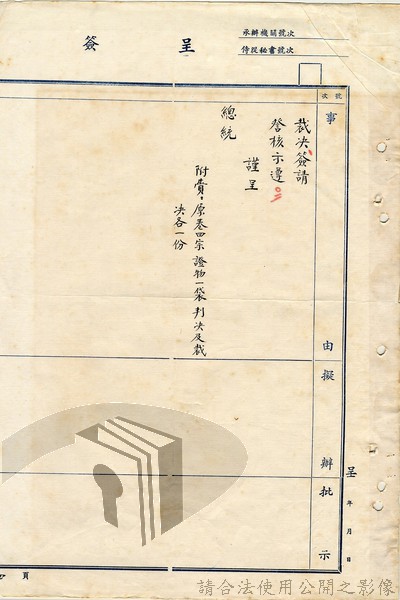 承辦機關號次
侍從祕書號次
簽呈
號次
事由
擬辦
批示
呈
年月日
裁決簽請
詧核示遵
謹呈
總統
附賫原卷四宗證物一袋判決及裁
決各一份
頁
請合法使用公開之影像